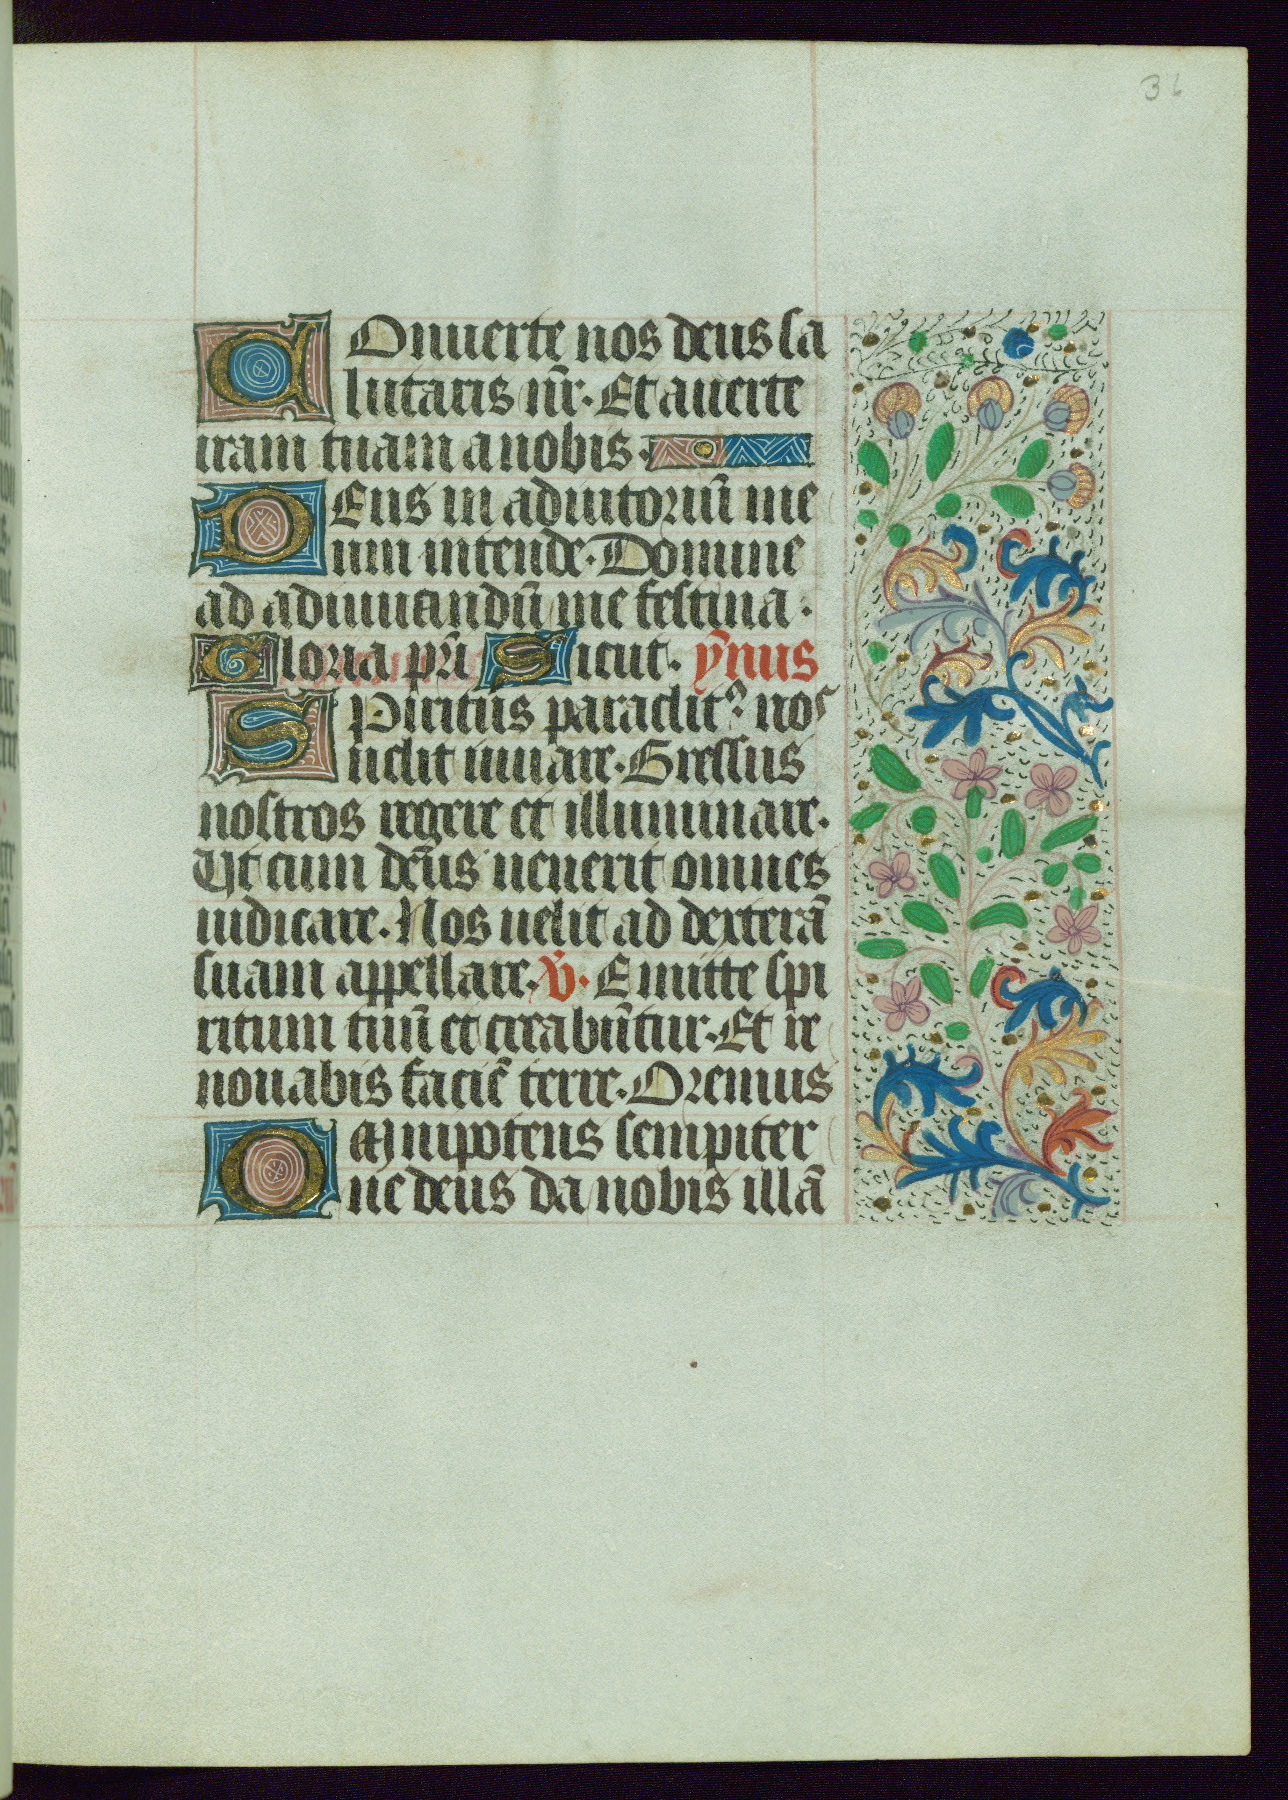 36
Conuerte nos deus sa
lutaris nr̄. Et auerte
iram tuam a nobis.
Deus in adiutoriū me
um intende. Domine
ad adiuuandū me festina.
Gloria pr̄i Sicut. ẏnus
Spiritus paraclitꝰ nos
uelit iuuare. Gressus
nostros regere et illuminare.
Ut cum deus uenerit omnes
iudicare. Nos uelit ad dexterā
suam appellare. V̄. Emitte spi
ritum tuū et creabūtur. Et re
nouabis faciē terre. Oremus
Omnipotens sempiter
ne deus da nobis illā